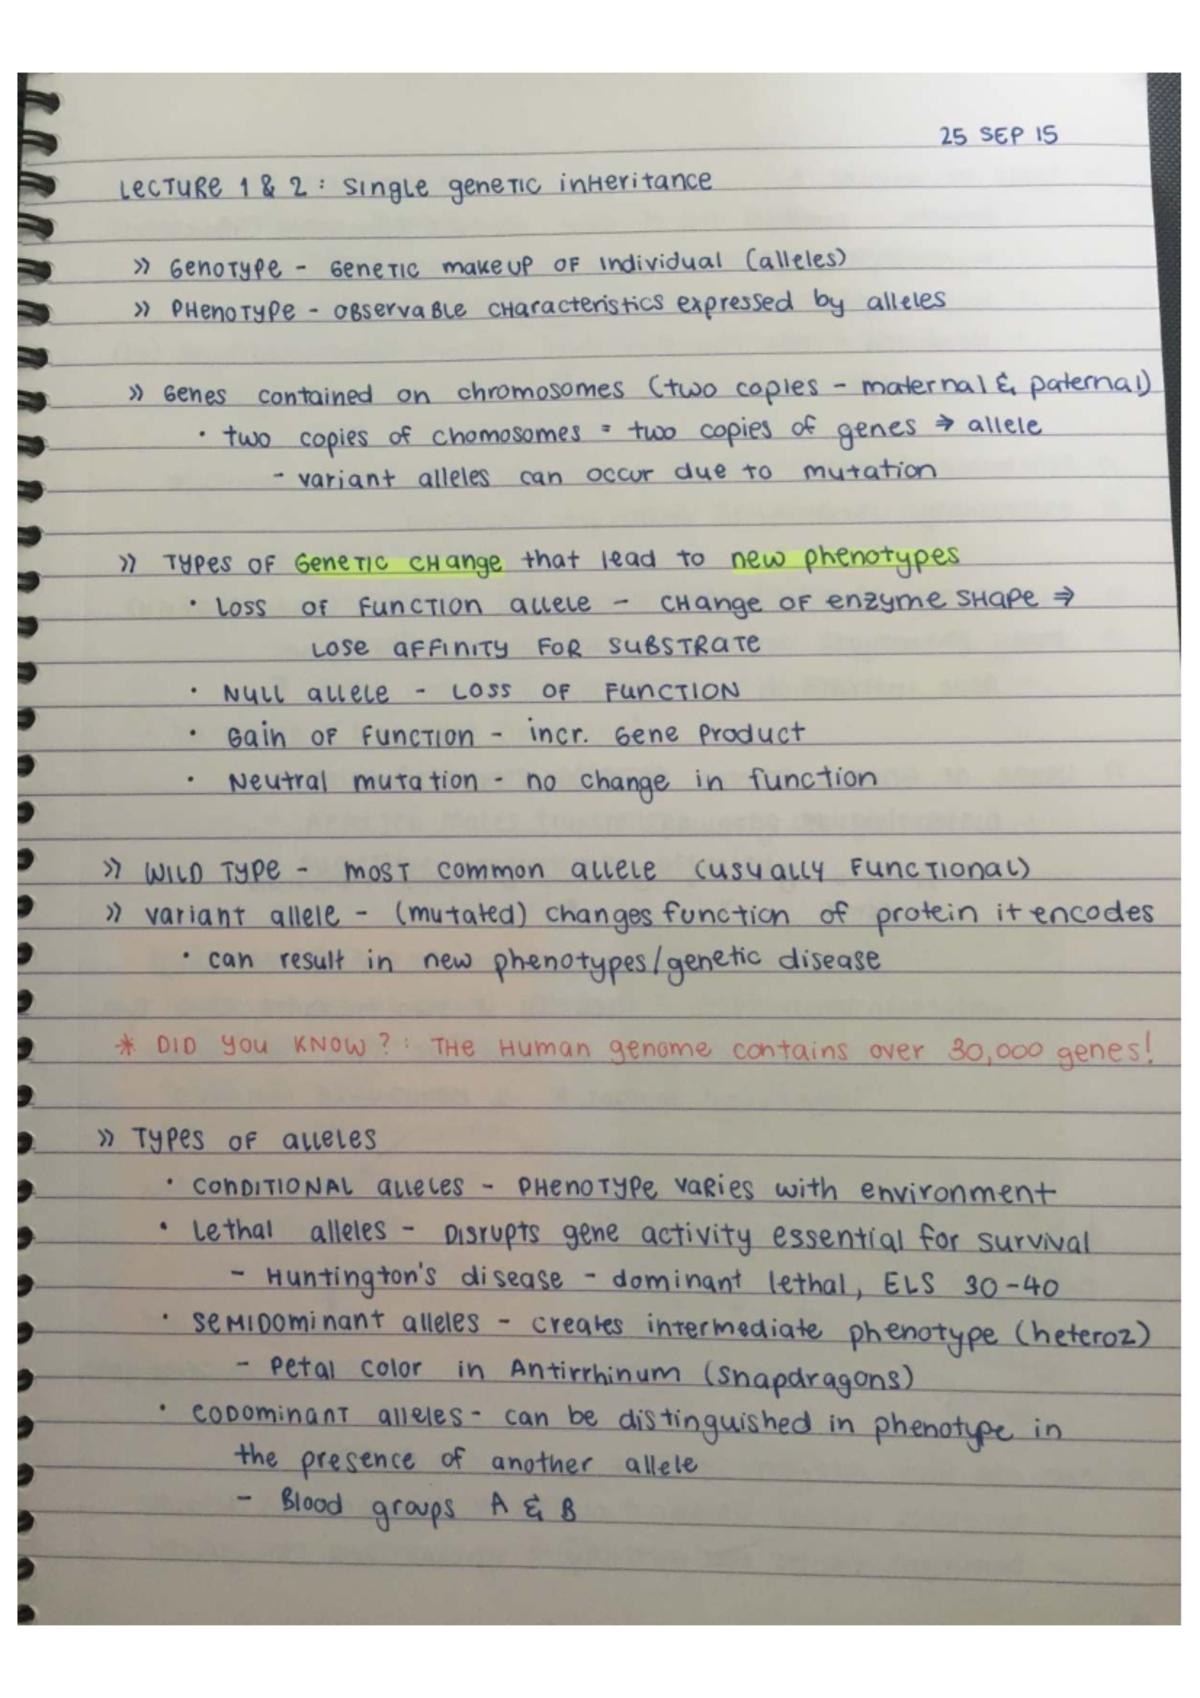 25 SEP 15
LECTURE 1 & 2 : Single genetic inheritance
» Genotype - Genetic makeup of individual (alleles)
» Phenotype - observable characteristics expressed by alleles
» Genes contained on chromosomes (two copies - maternal & paternal)
· two copies of chomosomes = two copies of genes → allele
- variant alleles can occur due to mutation
» Types of Genetic change that lead to new phenotypes
· Loss of function allele - change of enzyme shape ⇒
lose affinity for substrate
· Null allele - Loss of function
· Gain of function - incr. Gene Product
· Neutral mutation - no change in function
» Wild type - most common allele (usually functional)
» variant allele - (mutated) changes function of protein it encodes
· can result in new phenotypes/genetic disease
* DID you KNOW? : The Human genome contains over 30,000 genes!
» Types of alleles
· Conditional alleles - Phenotype varies with environment
· Lethal alleles - Disrupts gene activity essential for survival
- Huntington's disease - dominant lethal, ELS 30-40
· Semidominant alleles - creates intermediate phenotype (heteroz)
- Petal color in Antirrhinum (Snapdragons)
· Codominant alleles - can be distinguished in phenotype in
the presence of another allele
- Blood groups A & B